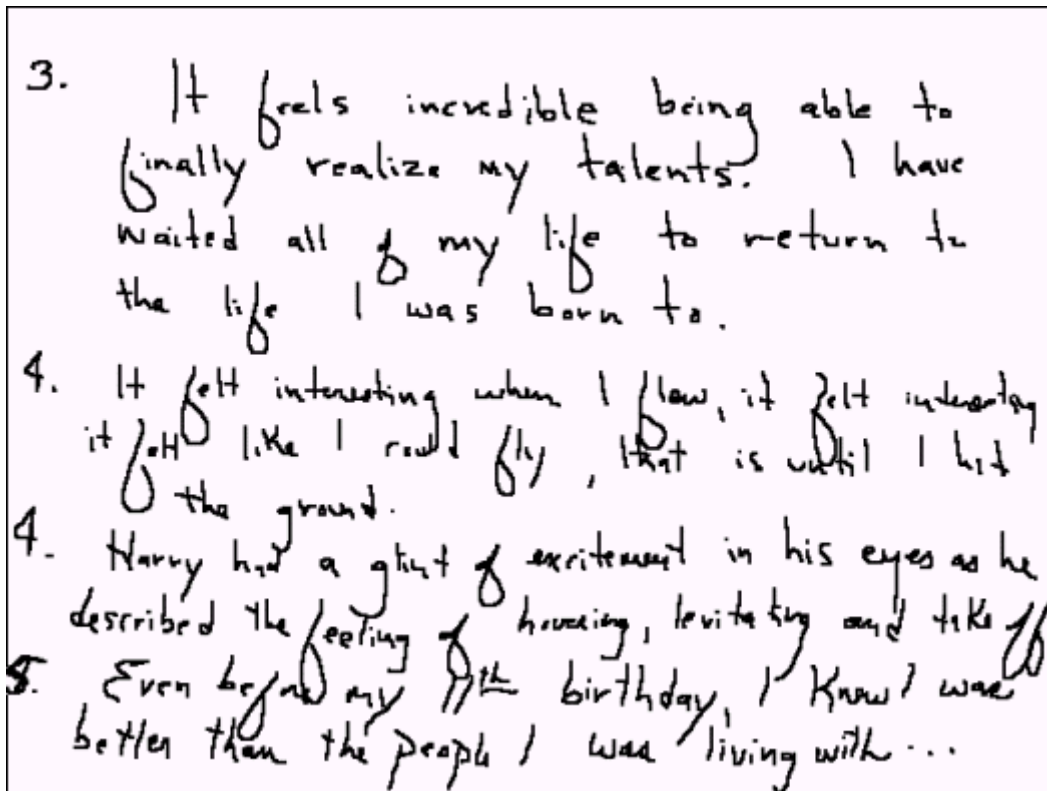 3. It feels incredible being able to
finally realize my talents. I have
waited all of my life to return to
the life I was born to.
4. It felt interesting when I flew, it felt interesting
it felt like I could fly, that is until I hit
the ground.
4. Harry had a glint of excitement in his eyes as he
described the feeling of hovering, levitating and take off
5. Even before my 11th birthday, I knew I was
better than the people I was living with...